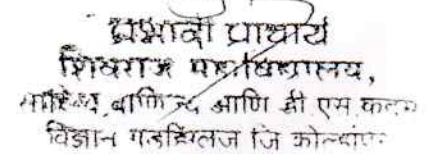 प्रभारी प्राचार्य
शिवराज महाविद्यालय,
वाणिज्य आणि डी एस कदम
विज्ञान गडहिंग्लज जि कोल्हापूर